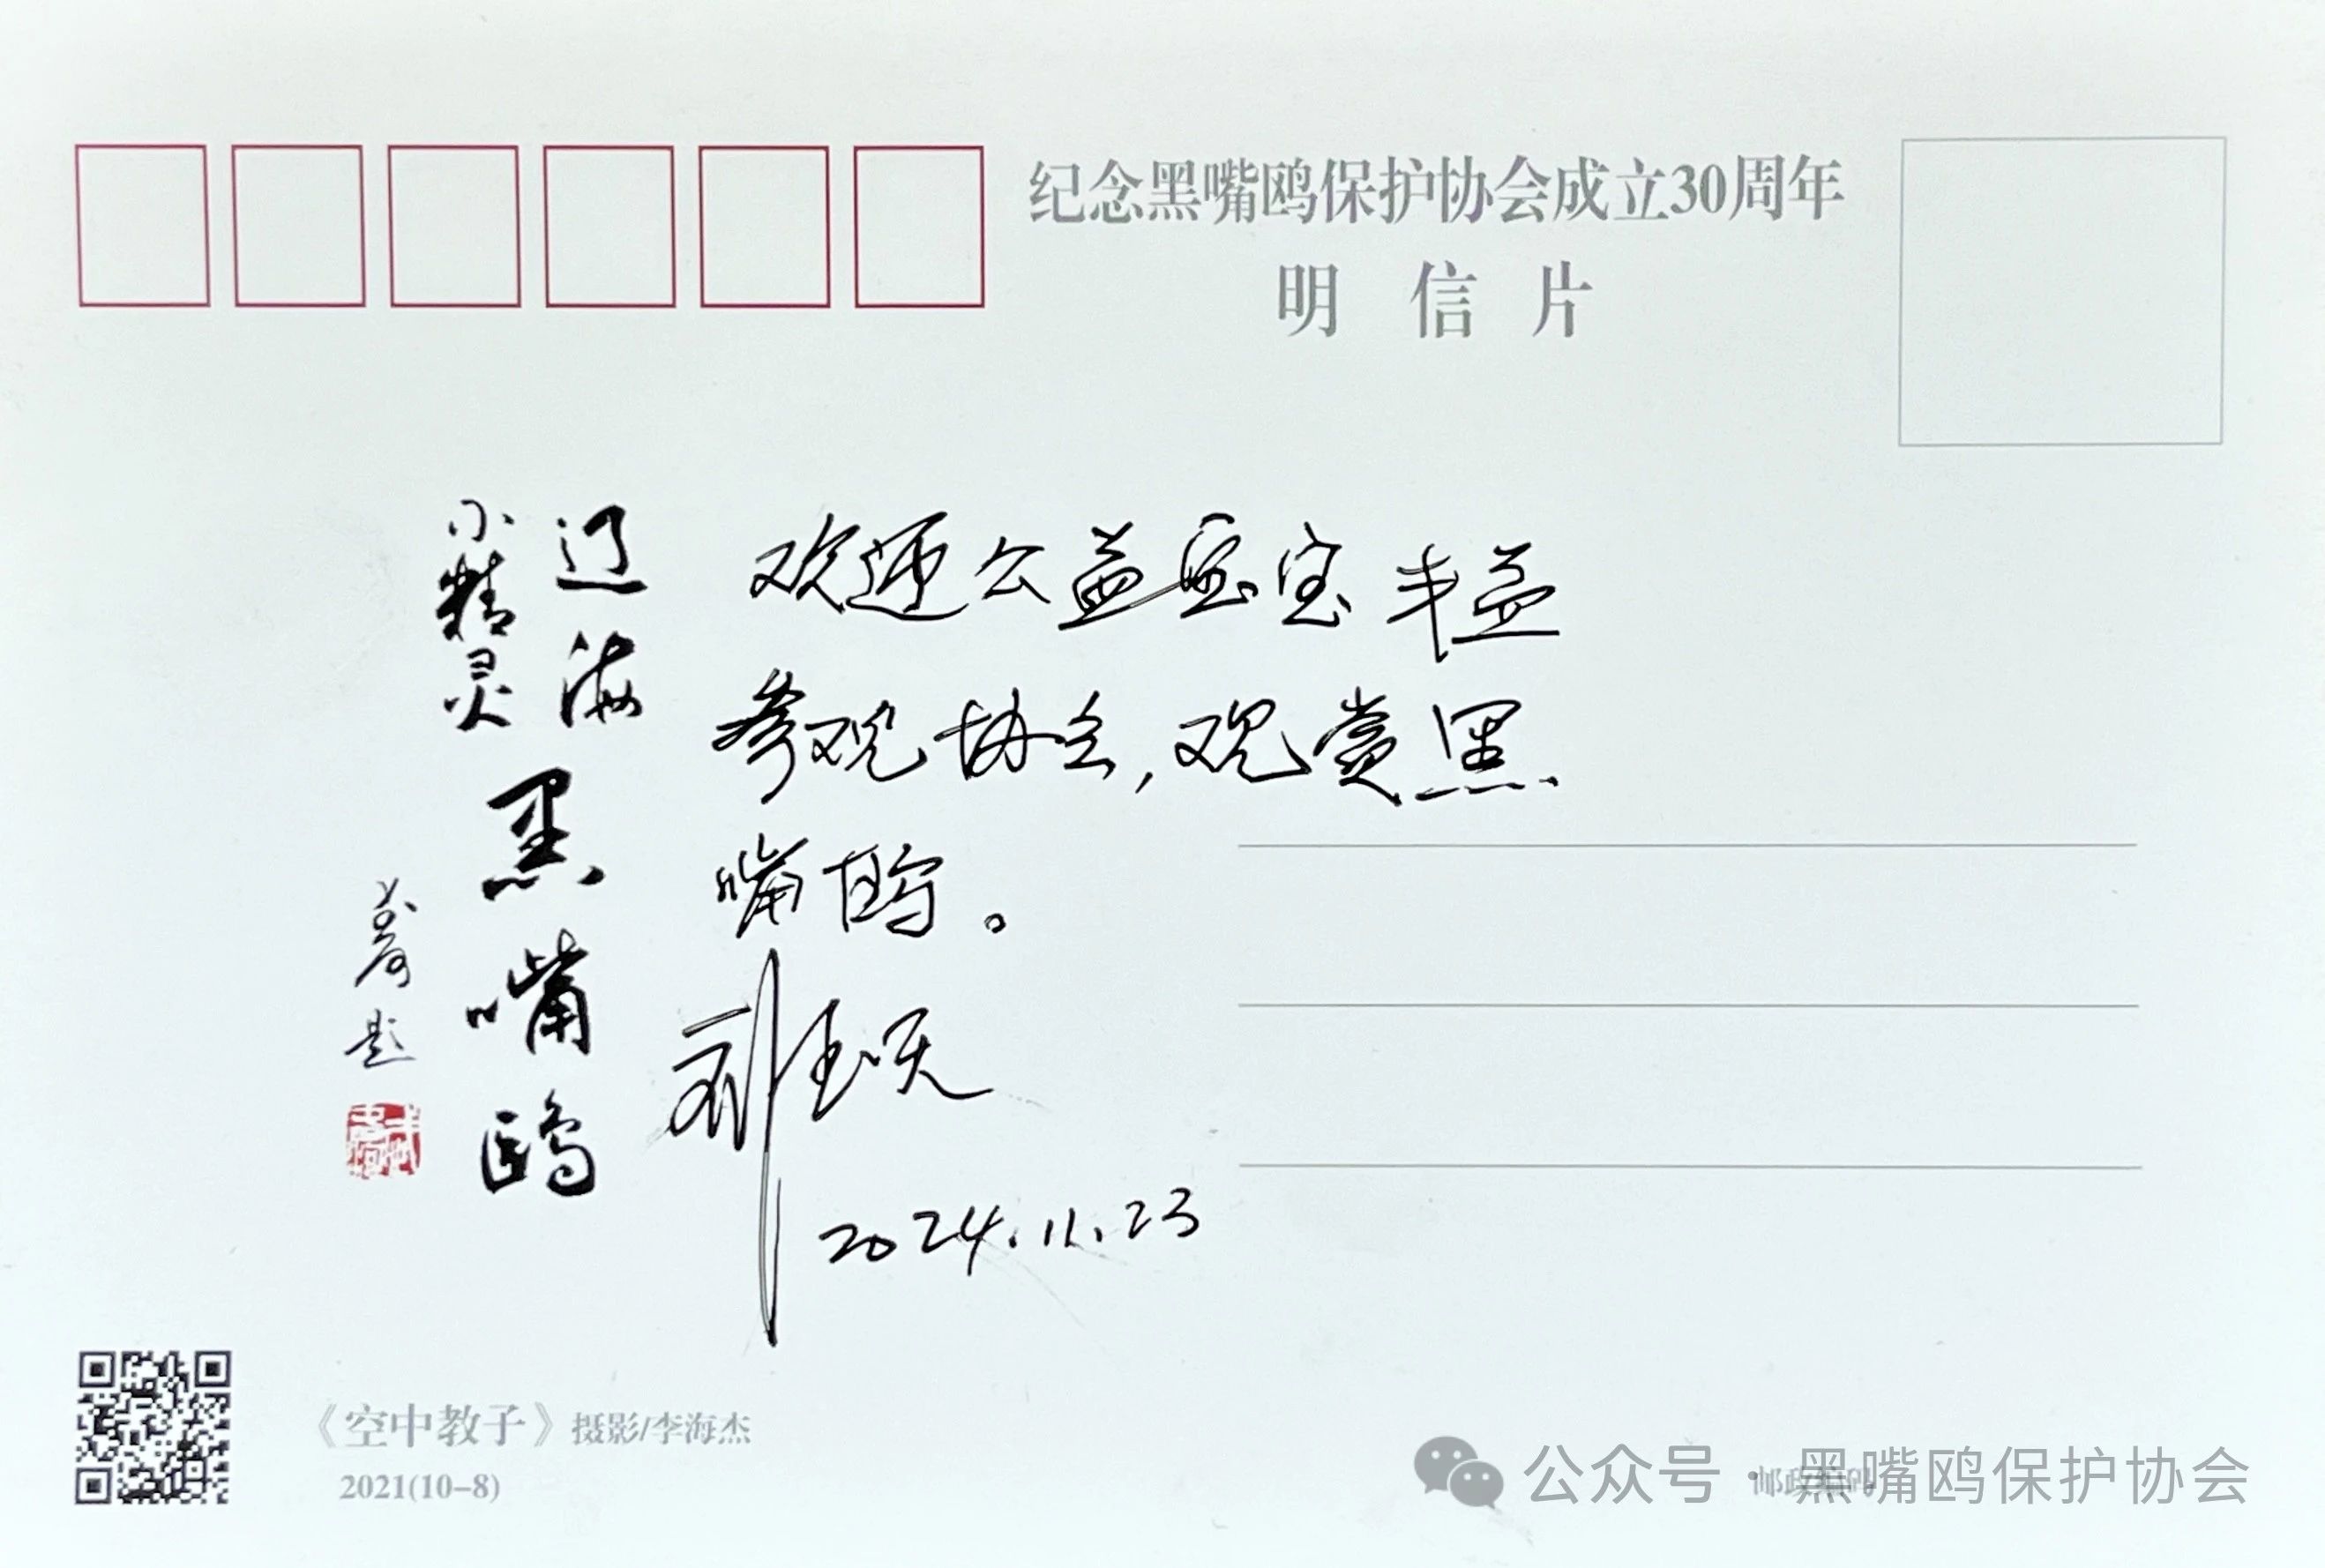 纪念黑嘴鸥保护协会成立30周年
明信片
辽海
小精灵
黑嘴鸥
题
欢迎公益宝宝丰益
参观协会,观赏黑
嘴鸥。
刘
2024.11.23
《空中教子》摄影/李海杰
2021(10-8)
邮政编码
公众号·黑嘴鸥保护协会